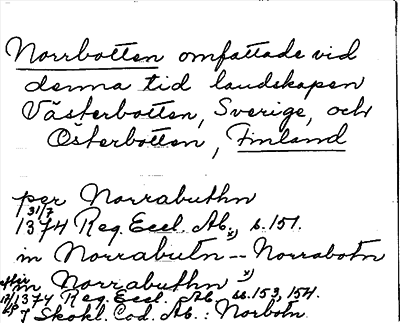 Norrbotten omfattade vid
denna tid landskapen
Västerbotten, Sverige, och
Österbotten, Finland
per Norrabuthn
31/7
1374 Reg. Eccl. Ab. x) s. 151.
in Norrabutn -- Norrabotn
in Norrabuthn x)
efter
1374 Reg. Eccl. Ab. ss. 153, 154.
x) Skokl. Cod. Ab.: Norbotn